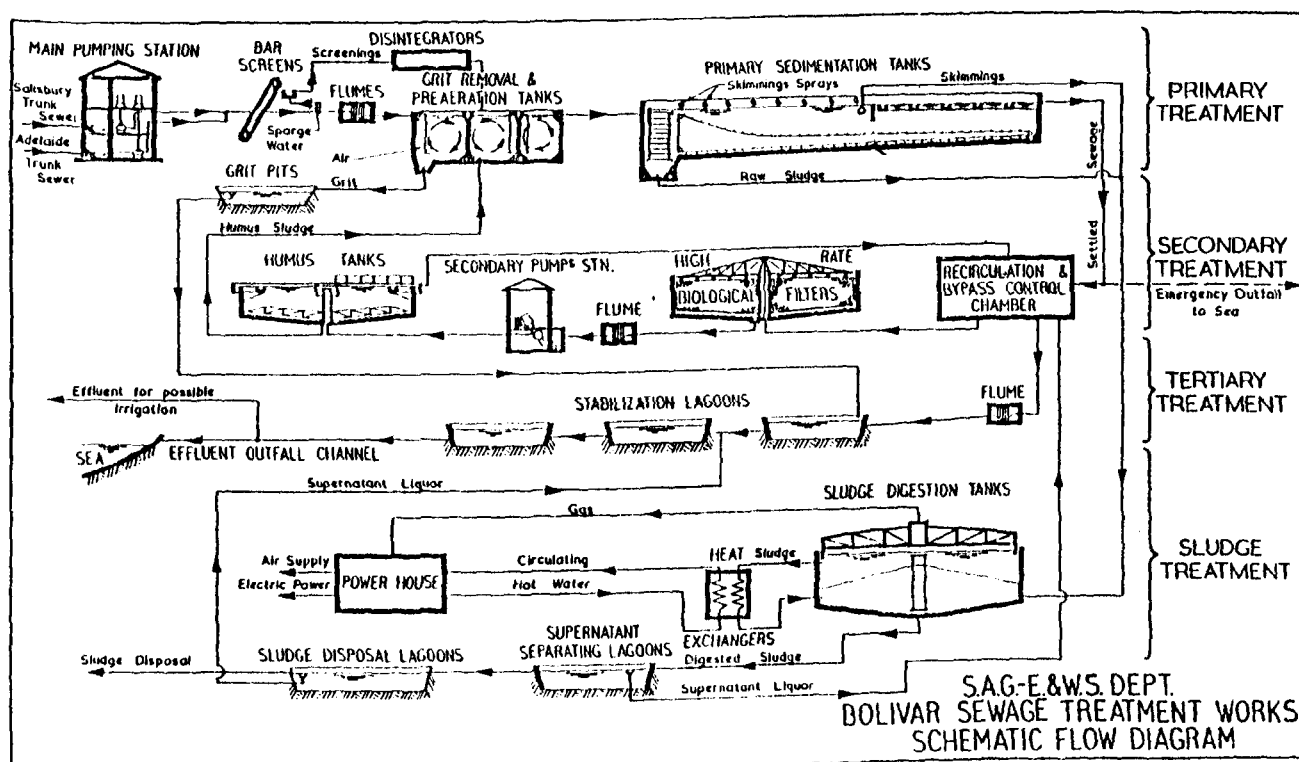 MAIN PUMPING STATION
Salisbury
Trunk
Sewer
Adelaide
Trunk
Sewer
BAR
SCREENS
Screenings
DISINTEGRATORS
FLUMES
Sparge
Water
GRIT REMOVAL &
PREAERATION TANKS
Air
Grit
GRIT PITS
PRIMARY SEDIMENTATION TANKS
Skimmings Sprays
Skimmings
Raw Sludge
Settled Sewage
PRIMARY
TREATMENT
Humus Sludge
HUMUS TANKS
SECONDARY PUMPG STN.
FLUME
HIGH RATE
BIOLOGICAL FILTERS
RECIRCULATION &
BYPASS CONTROL
CHAMBER
Emergency Outfall
to Sea
SECONDARY
TREATMENT
Effluent for possible
irrigation
SEA
EFFLUENT OUTFALL CHANNEL
STABILIZATION LAGOONS
FLUME
TERTIARY
TREATMENT
Supernatant Liquor
Gas
SLUDGE DIGESTION TANKS
Air Supply
Electric Power
POWER HOUSE
Circulating
Hot Water
HEAT
EXCHANGERS
Sludge
SLUDGE
TREATMENT
Sludge Disposal
SLUDGE DISPOSAL LAGOONS
SUPERNATANT
SEPARATING LAGOONS
Digested Sludge
Supernatant Liquor
S.A.G.-E.&W.S. DEPT.
BOLIVAR SEWAGE TREATMENT WORKS
SCHEMATIC FLOW DIAGRAM